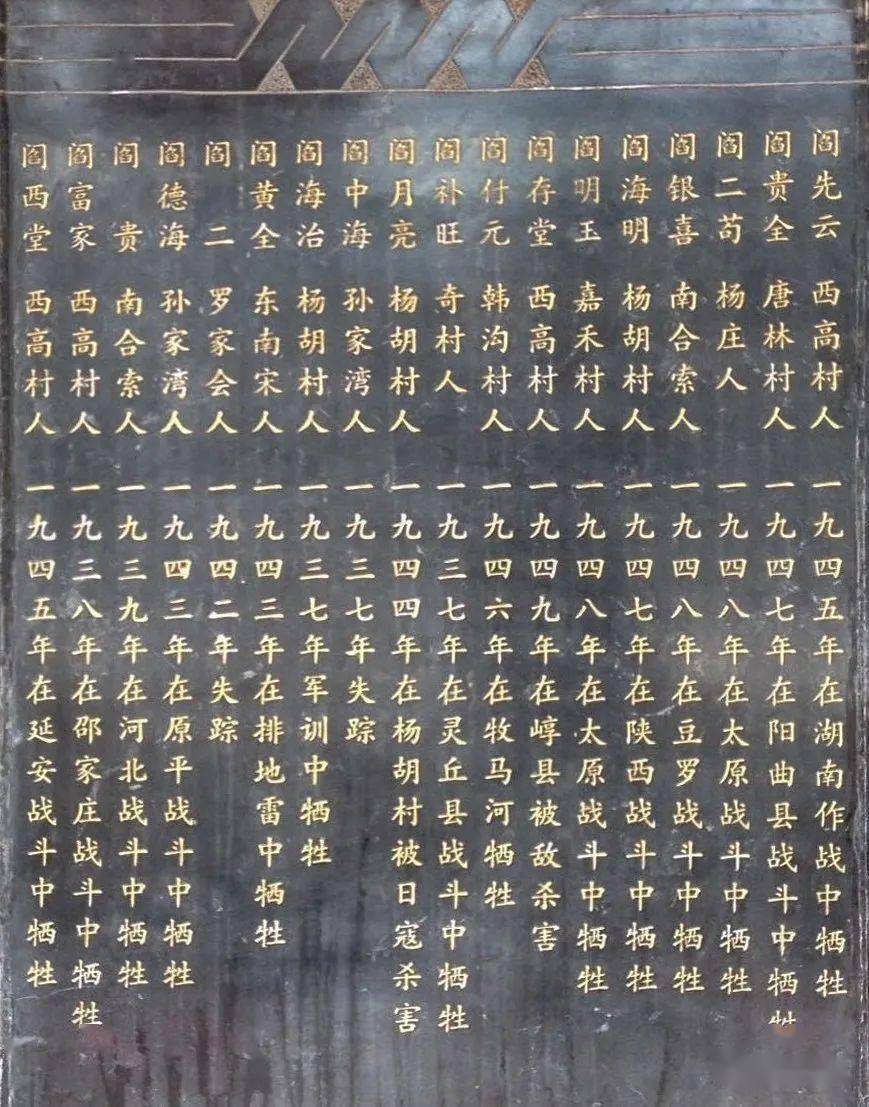 阎先云 西高村人 一九四五年在湖南作战中牺牲
阎贵全 唐林村人 一九四七年在阳曲县战斗中牺牲
阎二苟 杨庄人 一九四八年在太原战斗中牺牲
阎银喜 南合索人 一九四八年在豆罗战斗中牺牲
阎海明 杨胡村人 一九四七年在陕西战斗中牺牲
阎明玉 嘉禾村人 一九四八年在太原战斗中牺牲
阎存堂 西高村人 一九四九年在崞县被敌杀害
阎付元 韩沟村人 一九四六年在牧马河牺牲
阎补旺 奇村人 一九三七年在灵丘县战斗中牺牲
阎月亮 杨胡村人 一九四四年在杨胡村被日寇杀害
阎中海 孙家湾人 一九三七年失踪
阎海治 杨胡村人 一九三七年军训中牺牲
阎黄全 东南宋人 一九四三年在排地雷中牺牲
阎二 罗家会人 一九四二年失踪
阎德海 孙家湾人 一九四三年在原平战斗中牺牲
阎贵 南合索人 一九三九年在河北战斗中牺牲
阎富家 西高村人 一九三八年在邵家庄战斗中牺牲
阎西堂 西高村人 一九四五年在延安战斗中牺牲